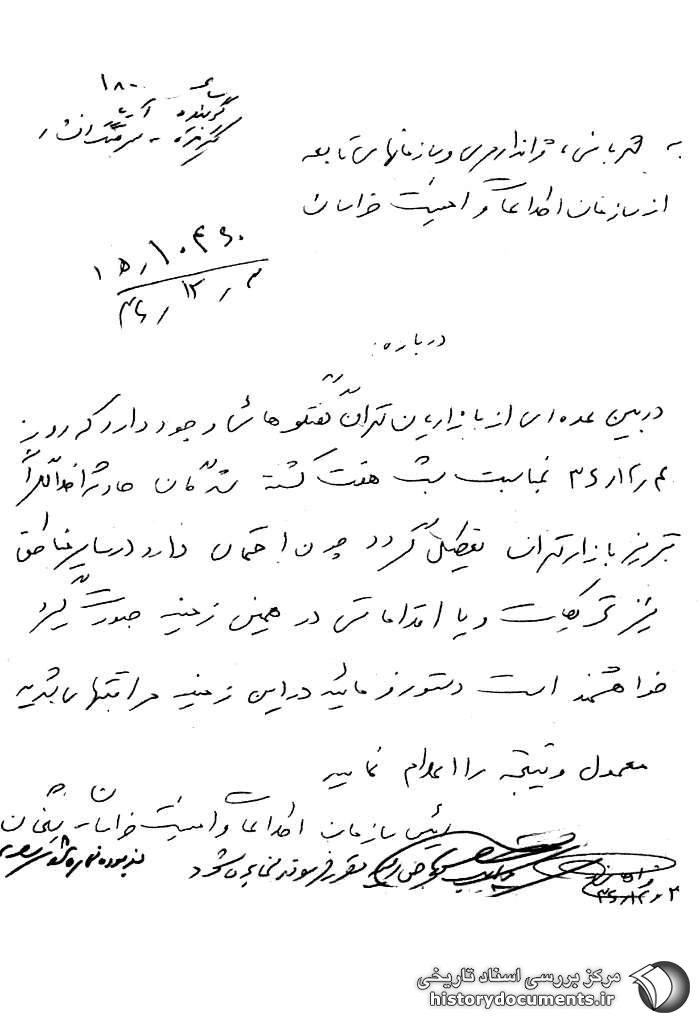 ساعت ۱۸۰۰
گوینده آریا
گیرنده - سرهنگ افشار
به شهربانی، ژاندارمری و سازمانهای تابعه
از سازمان اطلاعات و امنیت خراسان
۱۵٫۱۰۴۶۰
۳۶٫۱۲٫۳
درباره:
در بین عده‌ای از بازاریان تهران گفتگوهائی وجود دارد که روز
۳۶٫۱۲٫۴ بمناسبت شب هفت کشته شدگان حادثه اخلالگران
تبریز بازار تهران تعطیل گردد چون احتمال دارد در سایر مناطق
نیز تحریکات و یا اقداماتی در همین زمینه صورت گیرد
خواهشمند است دستور فرمائید در این زمینه مراقبتهای شدید
معمول و نتیجه را اعلام نمایید
رئیس سازمان اطلاعات و امنیت خراسان شیخان
مرکز بررسی اسناد تاریخی
historydocuments.ir